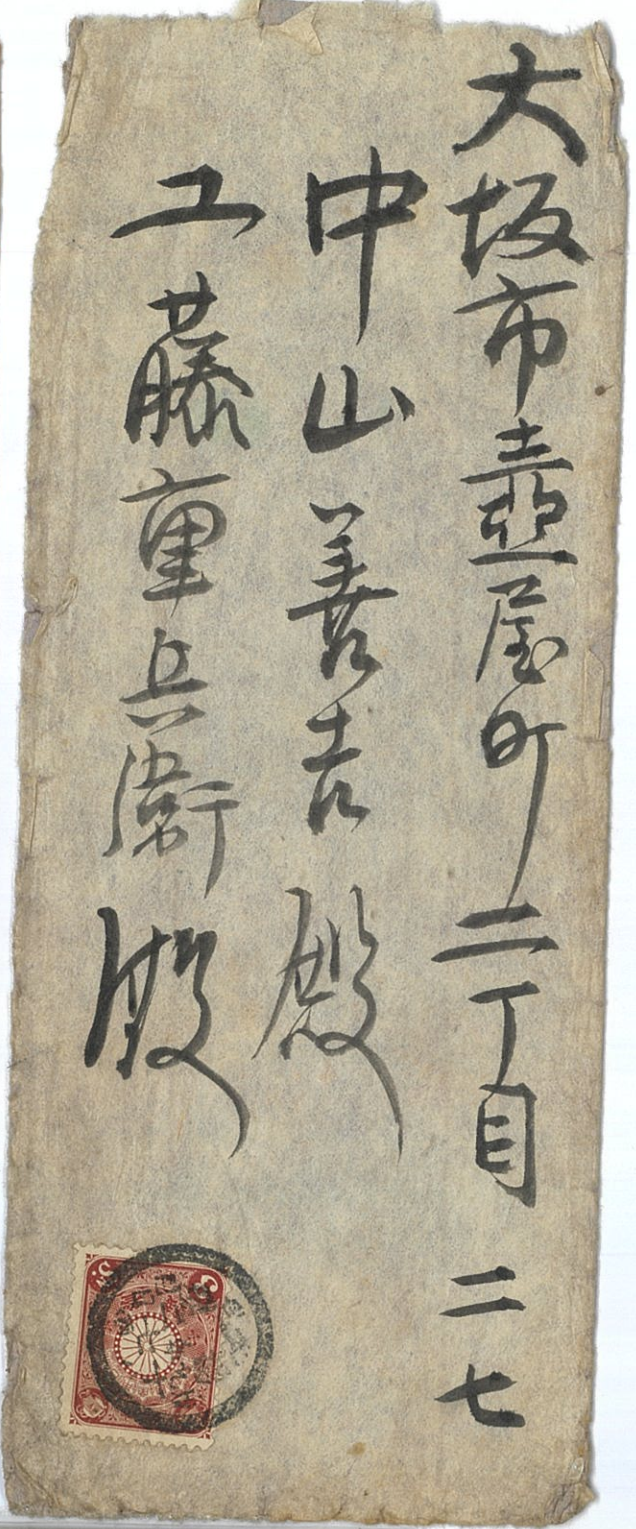 大坂市壺屋町二丁目 二七
中山善吉殿
工藤重兵衛殿